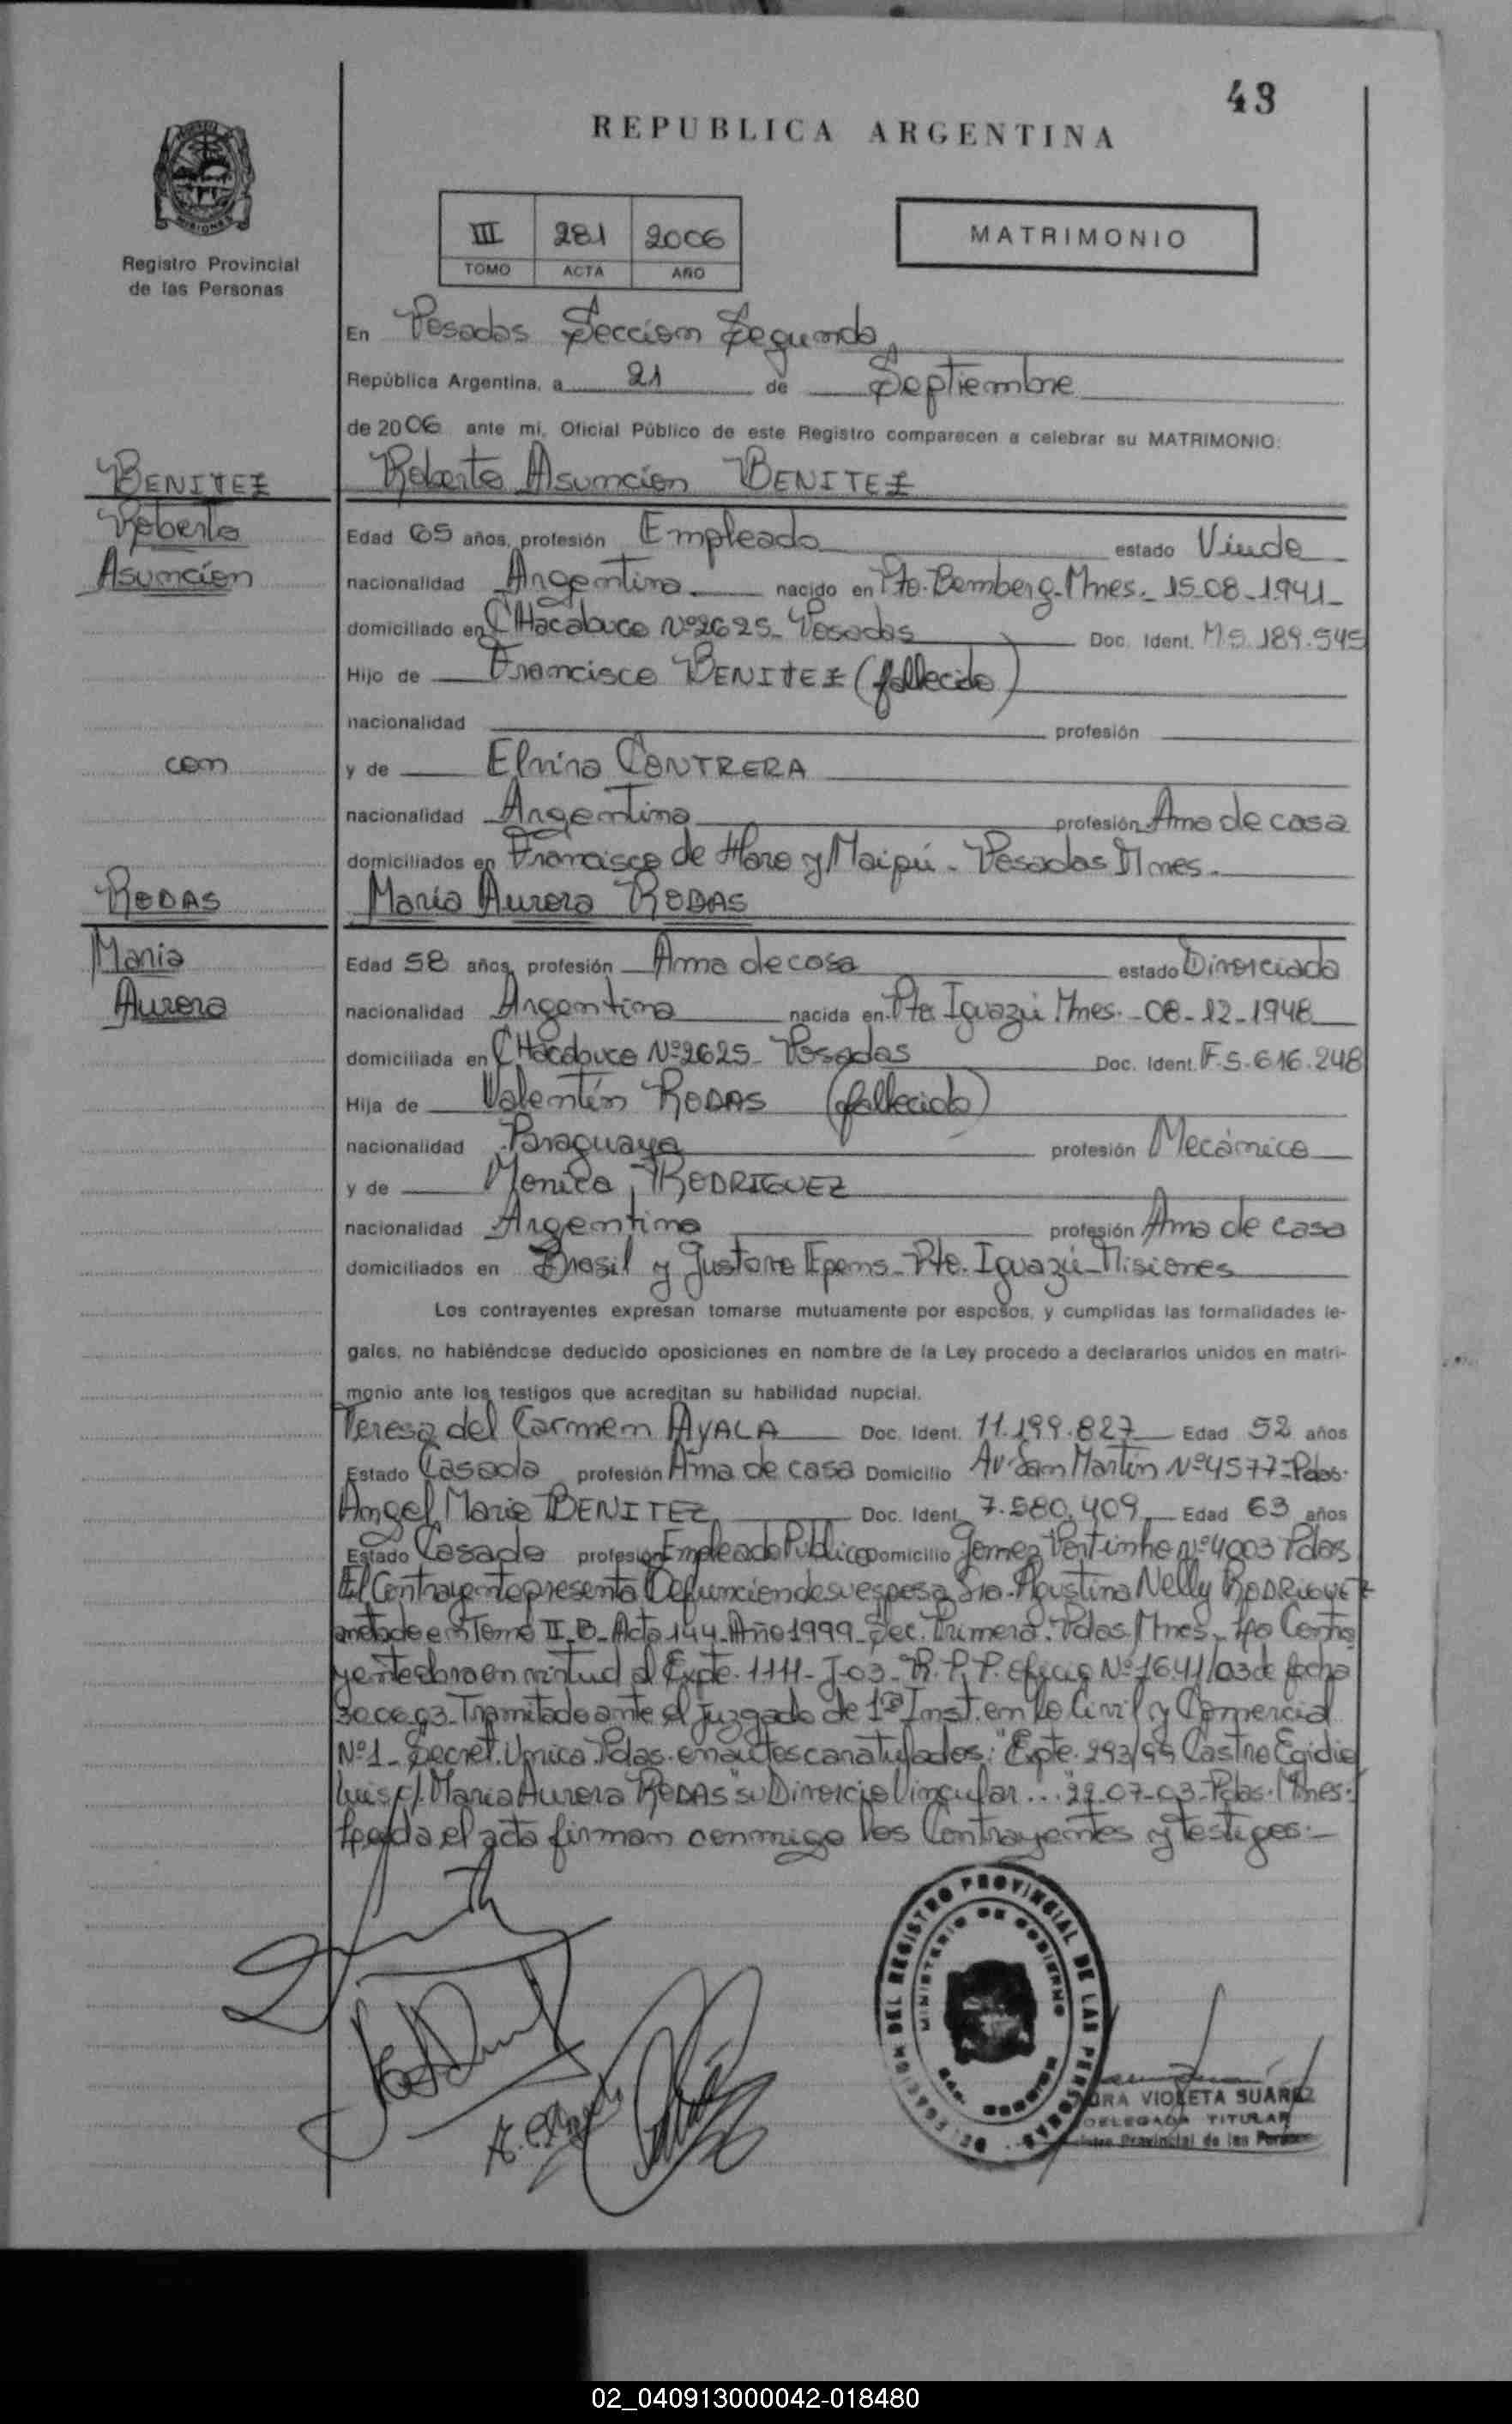 43
REPUBLICA ARGENTINA
MISIONES
Registro Provincial
de las Personas
III 281 2006
TOMO ACTA AÑO
MATRIMONIO
En Posadas Sección Segunda
República Argentina, a 21 de Septiembre
de 2006 ante mí, Oficial Público de este Registro comparecen a celebrar su MATRIMONIO:
BENITEZ
Roberto Asunción BENITEZ
Roberto
Edad 65 años, profesión Empleado estado Viudo
Asunción
nacionalidad Argentina nacido en Pto. Bemberg-Mnes.- 15-08-1941-
domiciliado en CHacabuco Nº2625- Posadas Doc. Ident. M.5.189.545
Hijo de Francisco BENITEZ (fallecido)
nacionalidad profesión
con
y de Elvira CONTRERA
nacionalidad Argentina profesión Ama de casa
domiciliados en Francisco de Haro y Maipú - Posadas Mnes.
RODAS
María Aurora RODAS
Maria
Edad 58 años, profesión Ama de casa estado Divorciada
Aurora
nacionalidad Argentina nacida en Pto. Iguazú Mnes.- 08-12-1948
domiciliada en CHacabuco Nº2625- Posadas Doc. Ident. F.5.616.248
Hija de Valentín RODAS (fallecido)
nacionalidad Paraguaya profesión Mecánico
y de Monica RODRIGUEZ
nacionalidad Argentina profesión Ama de casa
domiciliados en Brasil y Gustavo Epens- Pto. Iguazú- Misiones
Los contrayentes expresan tomarse mutuamente por esposos, y cumplidas las formalidades le-
gales, no habiéndose deducido oposiciones en nombre de la Ley procedo a declararlos unidos en matri-
monio ante los testigos que acreditan su habilidad nupcial.
Teresa del Carmen AYALA Doc. Ident. 11.199.827 Edad 52 años
Estado Casada profesión Ama de casa Domicilio Av San Martín Nº4577-Pdas.
Angel Mario BENITEZ Doc. Ident. 7.580.409 Edad 63 años
Estado Casado profesión Empleado Público Domicilio Gomez Portinho Nº4003 Pdas
El Contrayente presenta Defunción de su esposa Sra. Agustina Nelly RODRIGUEZ
anotado en Tomo II-B-Acta 144-Año 1999-Sec. Primera. Pdas Mnes- La Contra
yente obra en virtud al Expte. 1111-J-03-R.P.P. Oficio Nº1641/03 de fecha
30.06.03-Tramitado ante el Juzgado de 1ra Inst. en lo Civil y Comercial
Nº1- Secret. Unica Pdas. en autos caratulados: "Expte. 293/99 Castro Egidio
Luis c/. Maria Aurora RODAS" s/Divorcio Vincular... 22-07-03-Pdas. Mnes.-
Leída el acta firman conmigo los Contrayentes y testigos.-
DELEGACION DEL REGISTRO PROVINCIAL DE LAS PERSONAS
MINISTERIO DE GOBIERNO
MISIONES
VIOLETA SUAREZ
DELEGADA TITULAR
Provincial de las Personas
02_040913000042-018480